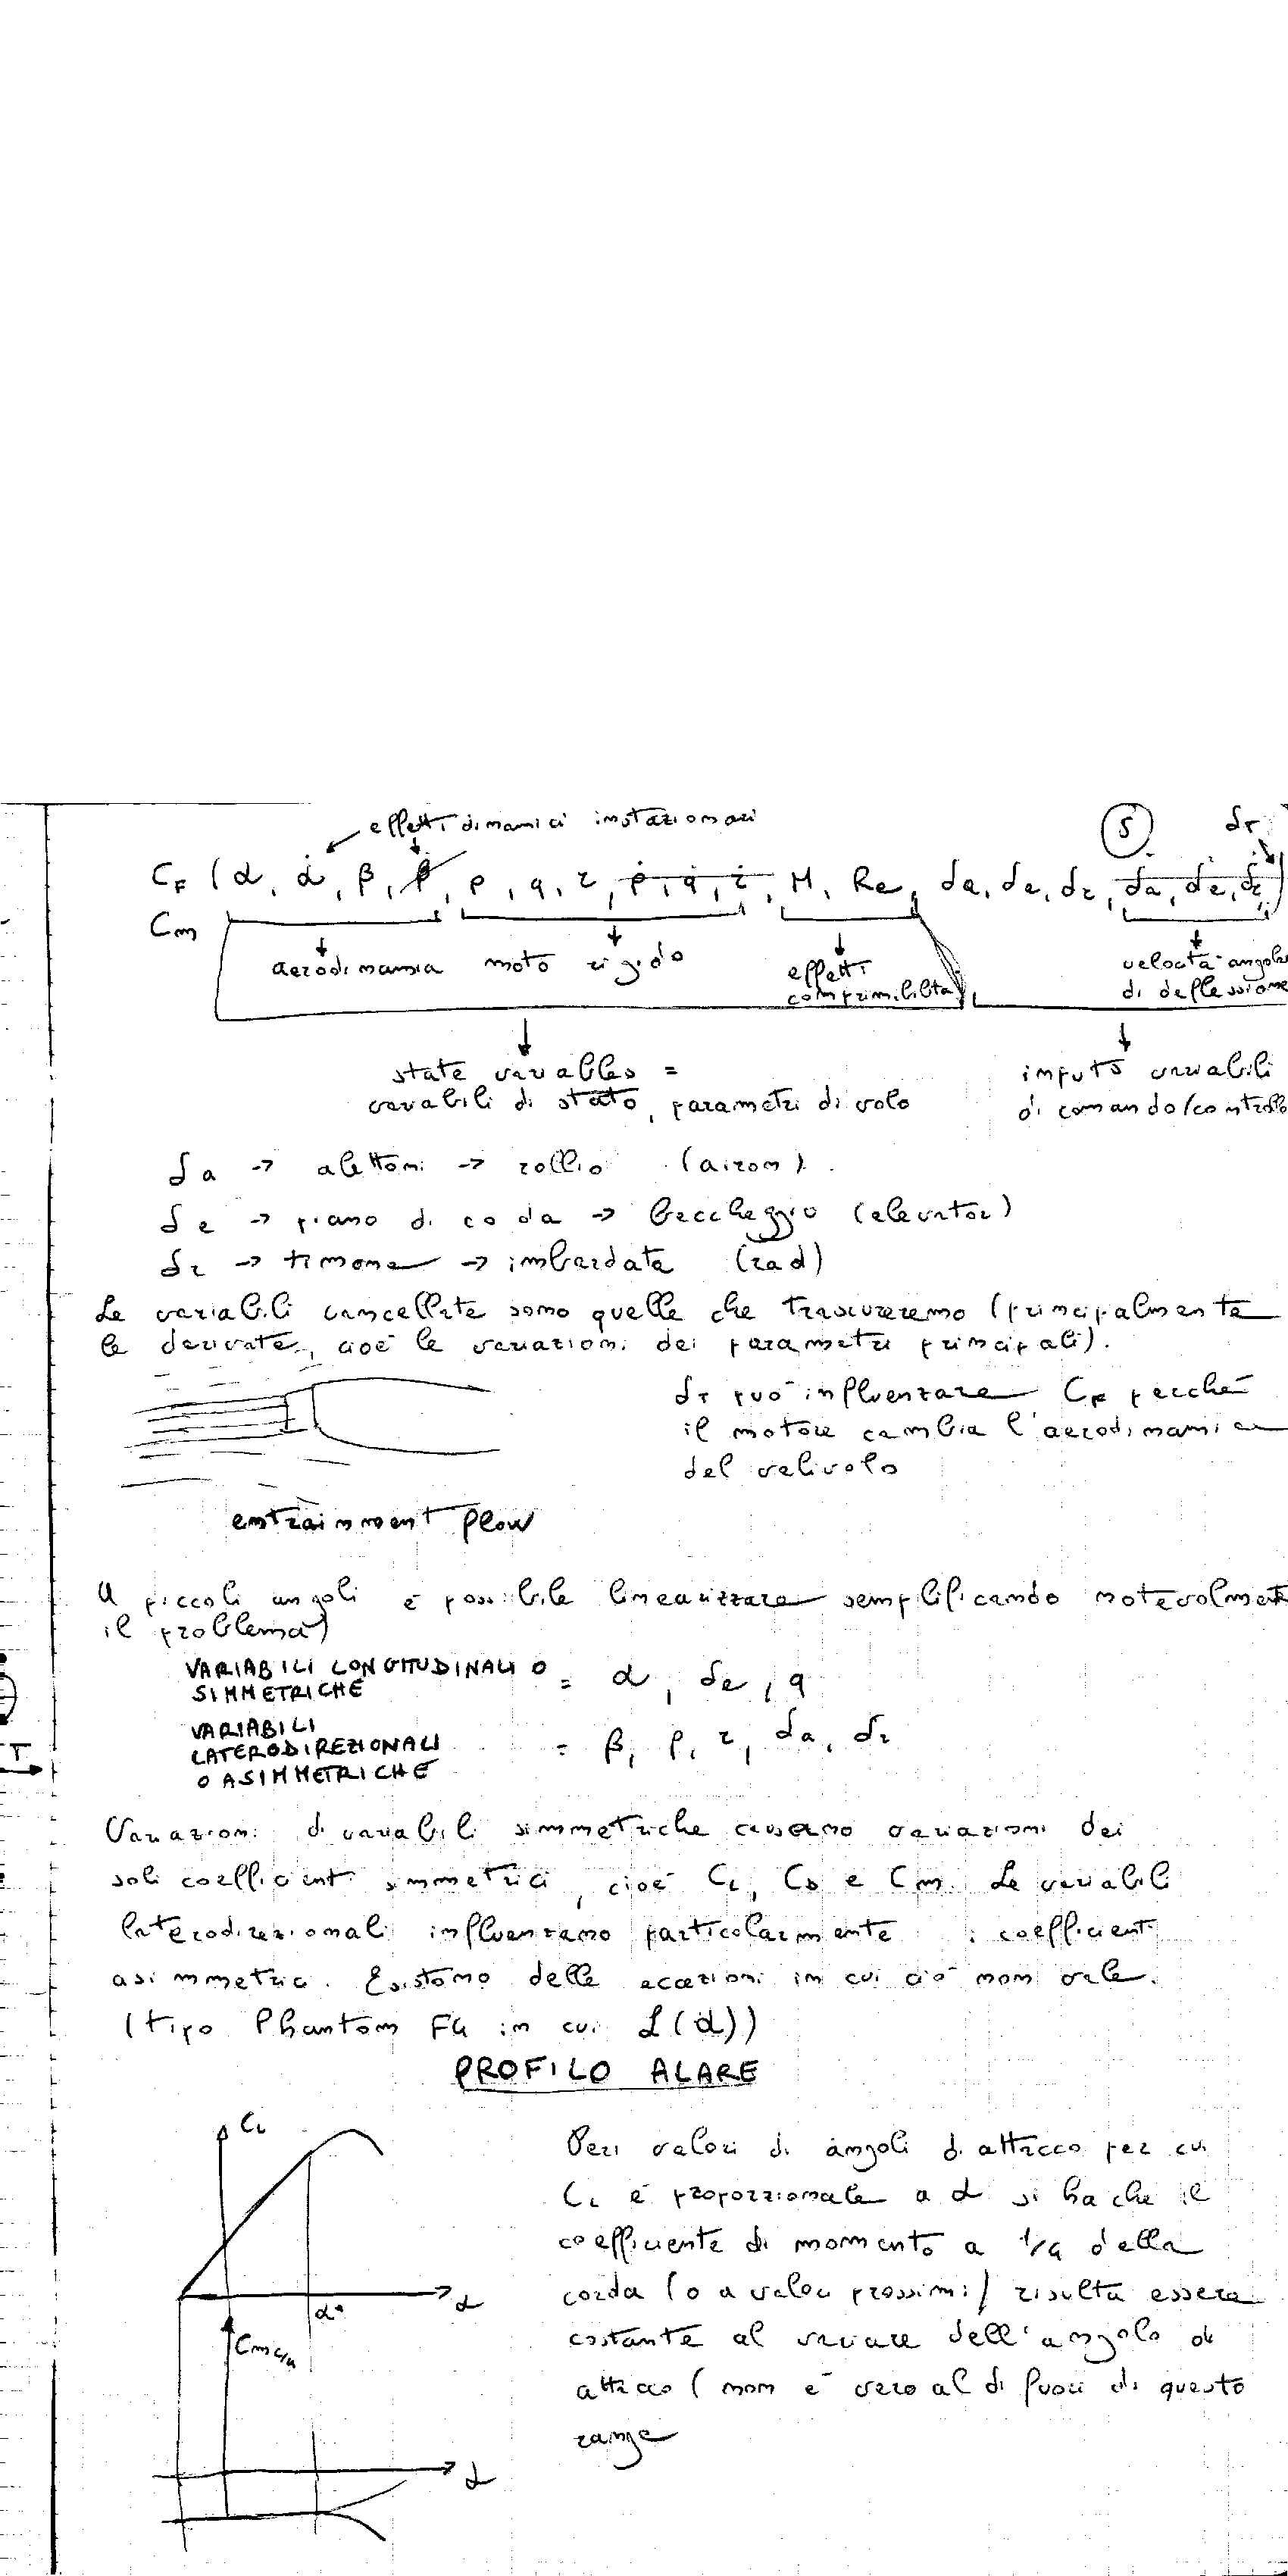 effetti dinamici instazionari
5
δT
CF (α, α̇, β, β̇, p, q, r, ṗ, q̇, ṙ, M, Re, δa, δe, δr, δ̇a, δ̇e, δ̇r)
Cm
aerodinamia moto rigido effetti comprimibilità
velocità angola
di deflessione
state variables =
variabili di stato, parametri di volo
imputs variabili
di comando/controllo
δa → alettoni → rollio (airon)
δe → piano di coda → beccheggio (elevator)
δr → timone → imbardata (rad)
Le variabili cancellate sono quelle che trascureremo (principalmente
le derivate, cioè le variazioni dei parametri principali).
δT può influenzare CF perché
il motore cambia l'aerodinamica
del velivolo
entrainment flow
A piccoli angoli è possibile linearizzare semplificando notevolment
il problema)
VARIABILI LONGITUDINALI O
SIMMETRICHE = α, δe, q
VARIABILI
LATERODIREZIONALI = β, p, r, δa, δr
O ASIMMETRICHE
T
Variazioni di variabili simmetriche causano variazioni dei
soli coefficienti simmetrici, cioè CL, CD e Cm. Le variabili
laterodirezionali influenzano particolarmente i coefficienti
asimmetrici. Esistono delle eccezioni in cui ciò non vale.
(tipo Phantom F4 in cui L(α))
PROFILO ALARE
CL
α
α*
Cm c/4
α
Per valori di angoli di attacco per cui
CL è proporzionale a α si ha che il
coefficiente di momento a 1/4 della
corda (o a valori prossimi) risulta essere
costante al variare dell'angolo di
attacco (non è vero al di fuori di questo
range